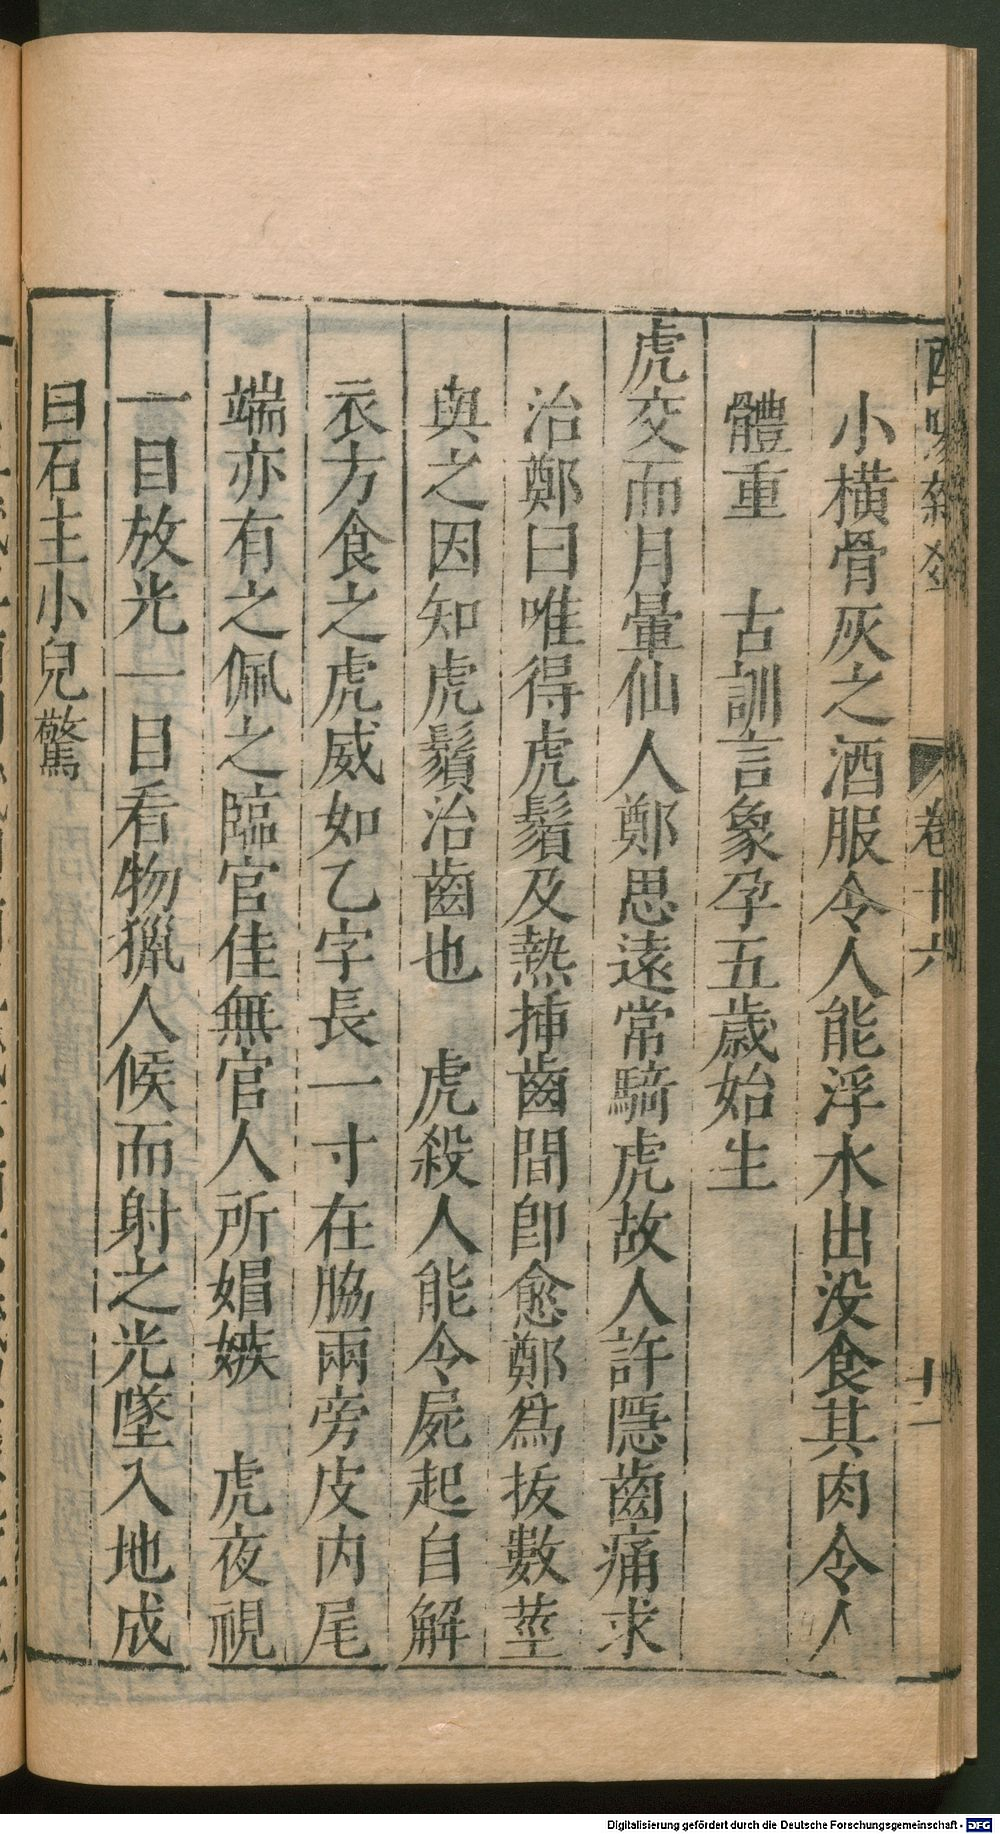 卷十六
十二
小橫骨灰之酒服令人能浮水出没食其肉令人
體重　古訓言象孕五歲始生
虎交而月暈仙人鄭思遠常騎虎故人許隱齒痛求
治鄭曰唯得虎鬚及熱揷齒間卽愈鄭爲拔數莖
與之因知虎鬚治齒也　虎殺人能令屍起自解
衣方食之虎威如乙字長一寸在脇兩旁皮内尾
端亦有之佩之臨官佳無官人所媢嫉　虎夜視
一目放光一目看物獵人候而射之光墜入地成
白石主小兒驚
Digitalisierung gefördert durch die Deutsche Forschungsgemeinschaft - DFG